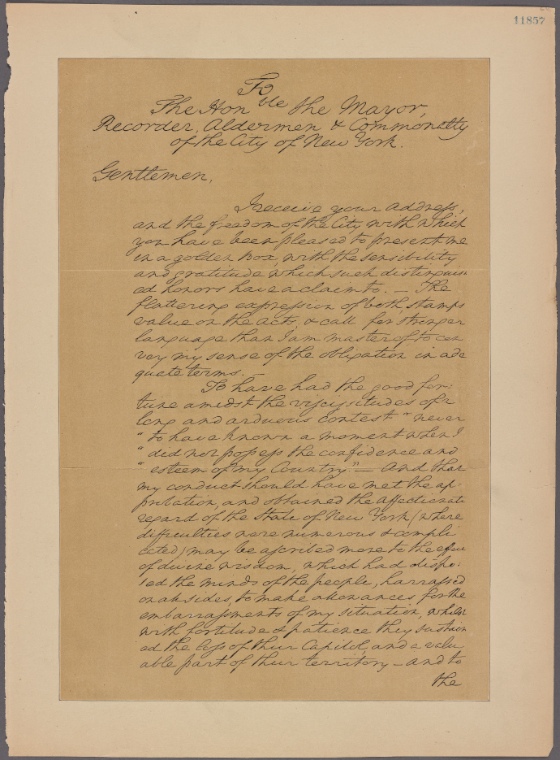 11857
To
The Hon ble the Mayor,
Recorder, Aldermen & Commonalty
of the City of New York.
Gentlemen,
I receive your address,
and the freedom of the City with which
you have been pleased to present me
in a golden Box, with the sensibility
and gratitude which such distinguish
ed honors have a claim to. — The
flattering expression of both, stamps
value on the acts, & call for stronger
language than I am master of to con
vey my sense of the obligation in ade
quate terms. —
To have had the good for
tune amidst the vicissitudes of a
long and arduous contest "never
"to have known a moment when I
"did not possess the confidence and
"esteem of my Country" — And that
my conduct should have met the ap-
probation, and obtained the affectionate
regard of the State of New York (where
difficulties were numerous & compli
cated) may be ascribed more to the effect
of divine wisdom, which had dispo-
sed the minds of the people, harrassed
on all sides, to make allowances for the
embarrassments of my situation, whilst
with fortitude & patience they sustain
ed the loss of their Capitol, and a valu
able part of their territory — and to
the